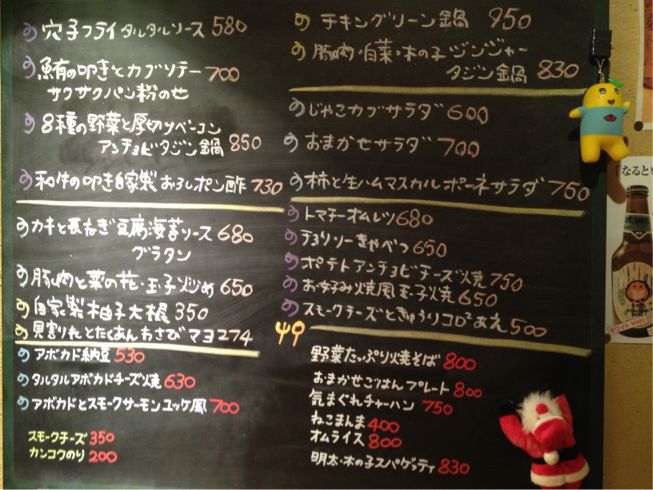 の穴子フライタルタルソース 580
の鮪の叩きとカブソテー 700
サクサクパン粉のせ
の8種の野菜と厚切りベーコン
アンチョビタジン鍋 850
の和牛の叩き自家製おろしポン酢 730
のカキと長ねぎ豆腐海苔ソース 680
グラタン
の豚肉と菜の花・玉子炒め 650
の自家製柚子大根 350
の貝割れとたくあんわさびマヨ 274
のアボカド納豆 530
のタルタルアボカドチーズ焼 630
のアボカドとスモークサーモンユッケ風 700
スモークチーズ 350
カンコクのり 200
のチキングリーン鍋 950
の豚肉・白菜・木の子ジンジャー
タジン鍋 830
のじゃこカブサラダ 600
のおまかせサラダ 700
の柿と生ハムマスカルポーネサラダ 750
のトマチーオムレツ 680
のチョリソーきゃべつ 650
のポテトアンチョビチーズ焼 750
のお好み焼風玉子焼 650
のスモークチーズときゅうりコロコロあえ 500
野菜たっぷり焼そば 800
おまかせごはんプレート 800
気まぐれチャーハン 750
ねこまんま 400
オムライス 800
明太・木の子スパゲッティ 830
なると